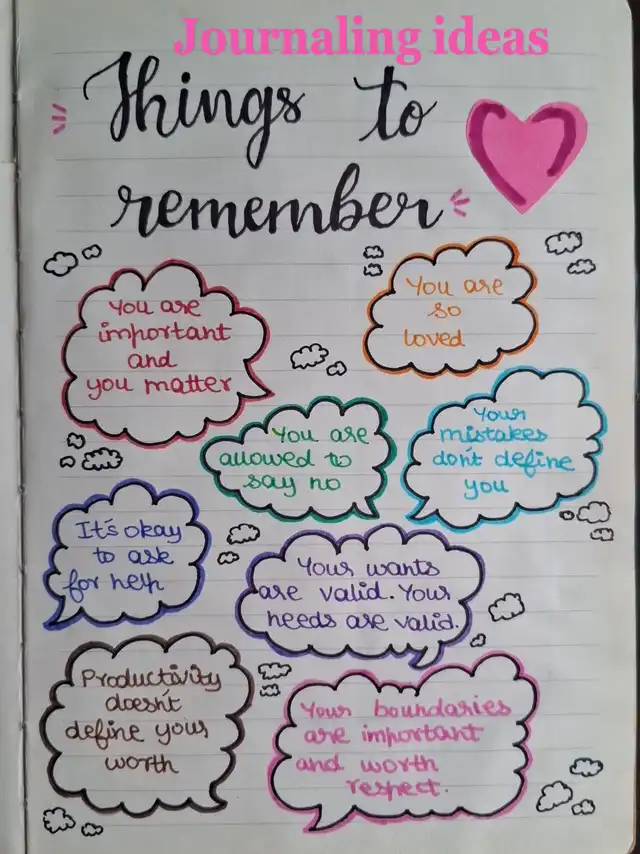 Journaling ideas
Things to
remember
You are
important
and
you matter
You are
so
loved
You are
allowed to
say no
Your
mistakes
don't define
you
It's okay
to ask
for help
Your wants
are valid. Your
needs are valid.
Productivity
doesn't
define your
worth
Your boundaries
are important
and worth
respect.